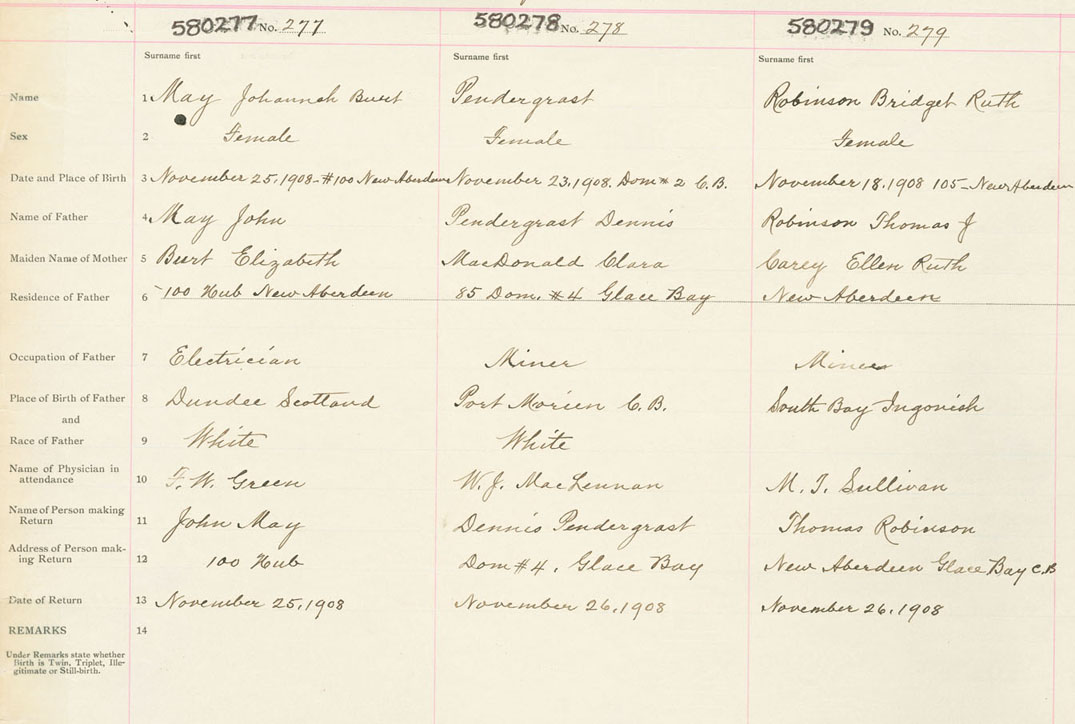 580277 No. 277 580278 No. 278 580279 No. 279
Surname first Surname first Surname first
Name 1 May Johannah Burt Pendergrast Robinson Bridget Ruth
Sex 2 Female Female Female
Date and Place of Birth 3 November 25, 1908 - #100 New Aberdeen November 23, 1908. Dom # 2 C.B. November 18, 1908 105 - New Aberdeen
Name of Father 4 May John Pendergrast Dennis Robinson Thomas J
Maiden Name of Mother 5 Burt Elizabeth MacDonald Clara Carey Ellen Ruth
Residence of Father 6 100 Hub New Aberdeen 85 Dom. #4 Glace Bay New Aberdeen
Occupation of Father 7 Electrician Miner Miner
Place of Birth of Father 8 Dundee Scotland Port Morien C.B. South Bay Ingonish
and
Race of Father 9 White White
Name of Physician in
attendance 10 F. W. Green W. J. MacLennan M. T. Sullivan
Name of Person making
Return 11 John May Dennis Pendergrast Thomas Robinson
Address of Person mak-
ing Return 12 100 Hub Dom #4, Glace Bay New Aberdeen Glace Bay C.B
Date of Return 13 November 25, 1908 November 26, 1908 November 26, 1908
REMARKS 14
Under Remarks state whether
Birth is Twin, Triplet, Ille-
gitimate or Still-birth.